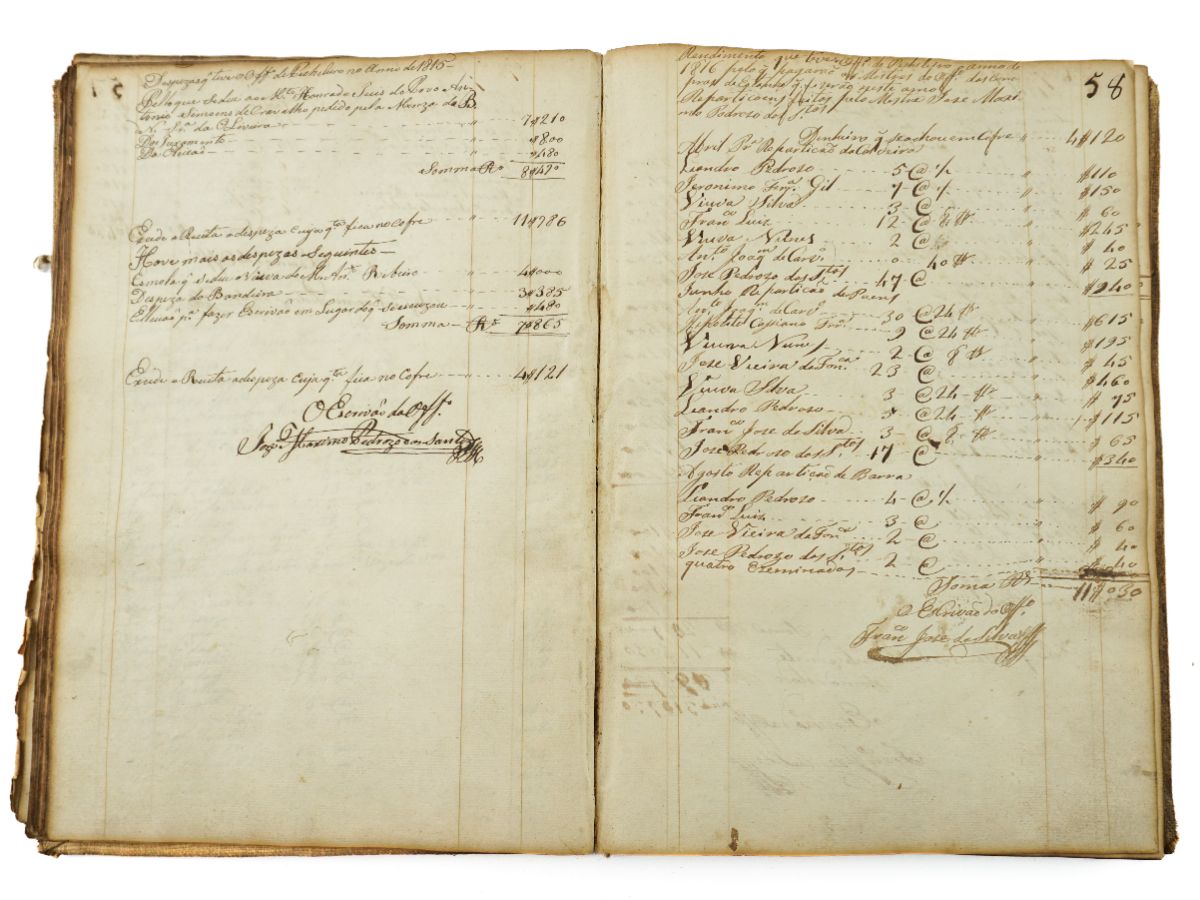 Despezas q̃ teve o Off.º de no Anno de 1815
Pello que se deu ao M.e Honrado Luis do Povo An-
tonio Simoens de Carvalho pedido pela Menza da B.
N. Sr.ª da Oliveira 7$210
Do Juramento $800
Da Eleicaõ $480
Somma Rs 8$490
Excede a Receita a despeza cuja q.ta fica no Cofre 11$786
Hove mais as despezas Seguintes
Esmola q̃ se deu a Viuva do M. An.to Ribeiro 4$000
Despeza da Bandeira 3$385
Elleicaõ p.ª fazer Escrivaõ em Lugar do q̃ se escuzou $480
Somma Rs 7$865
Excede a Receita a despeza cuja q.ta fica no Cofre 4$121
O Escrivaõ do Off.º
Joze Maximo Pedrozo dos Santos
58
Rendimento que teve o Off.º de anno de
1816 pelo q̃ pagamo os Mestres do Off.º das
q̃ se neste anno
Reparticoens feitos pelo Mestre Jose Maxi-
mo Pedrozo dos S.tos
Dinheiro q̃ se achou em Cofre 4$120
Abril Pr.ª Reparticaõ da
Leandro Pedrozo 5 @ ½ $110
Jeronimo Ferr.ª Gil 7 @ ½ $150
Viuva Silva 3 @ $60
Fran.co Luiz 12 @ 8 # $245
Viuva Nunes 2 @ $40
An.to Joaq.m de Carv.º 0 40 # $25
Jose Pedrozo dos S.tos 47 @ $940
Junho Reparticaõ de
An.to Joaq.m de Carv.º 30 @ 24 # $615
Hipolito Cassiano Fr.ª 9 @ 24 # $195
Viuva Nunes 2 @ 8 # $45
Jose Vieira da Fon.ca 23 @ $460
Viuva Silva 3 @ 24 # $75
Leandro Pedrozo 5 @ 24 # $115
Fran.co Jose da Silva 3 @ 8 # $65
Jose Pedrozo dos S.tos 17 @ $340
Agosto Reparticaõ de Barra
Leandro Pedrozo 4 @ ½ $90
Fran.co Luiz 3 @ $60
Jose Vieira da Fon.ca 2 @ $40
Jose Pedrozo dos S.tos 2 @ $40
quatro Exeminados
Soma Rs 11$030
O Escrivaõ do Off.º
Fran.co Jose da Silva